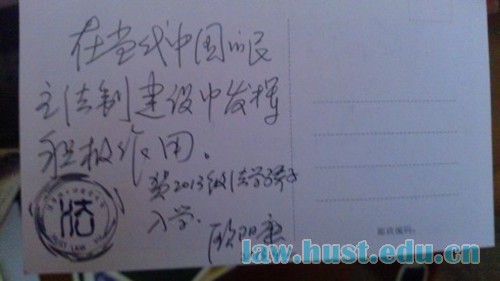 在当代中国的民
主法制建设中发挥
积极作用。
贺2013级法学子
入学.
欧阳康
法
HUST LAW
邮政编码:
law.hust.edu.cn